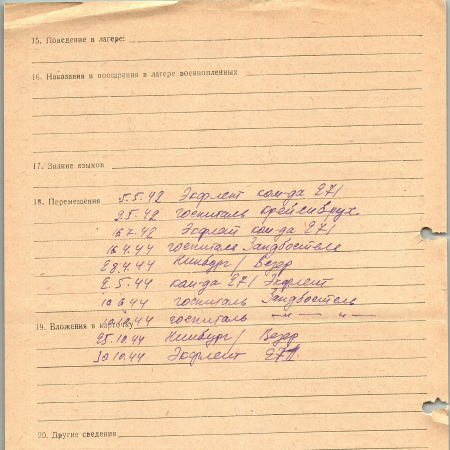 15. Поведение в лагере:
16. Наказания и поощрения в лагере военнопленных
17. Знание языков
18. Перемещения 5.5.42 Экфлент ком-да 271
25.42 госпиталь
16.7.42 Экфлент ком-да 271
16.4.44 госпиталь Зандбостель
28.4.44 Нинбург/Везер
2.5.44 ком-да 271 Экфлент
10.6.44 госпиталь Зандбостель
10.44 госпиталь —"— "—
19. Вложения в карточку
25.10.44 Нинбург/Везер
30.10.44 Экфлент 271
20. Другие сведения